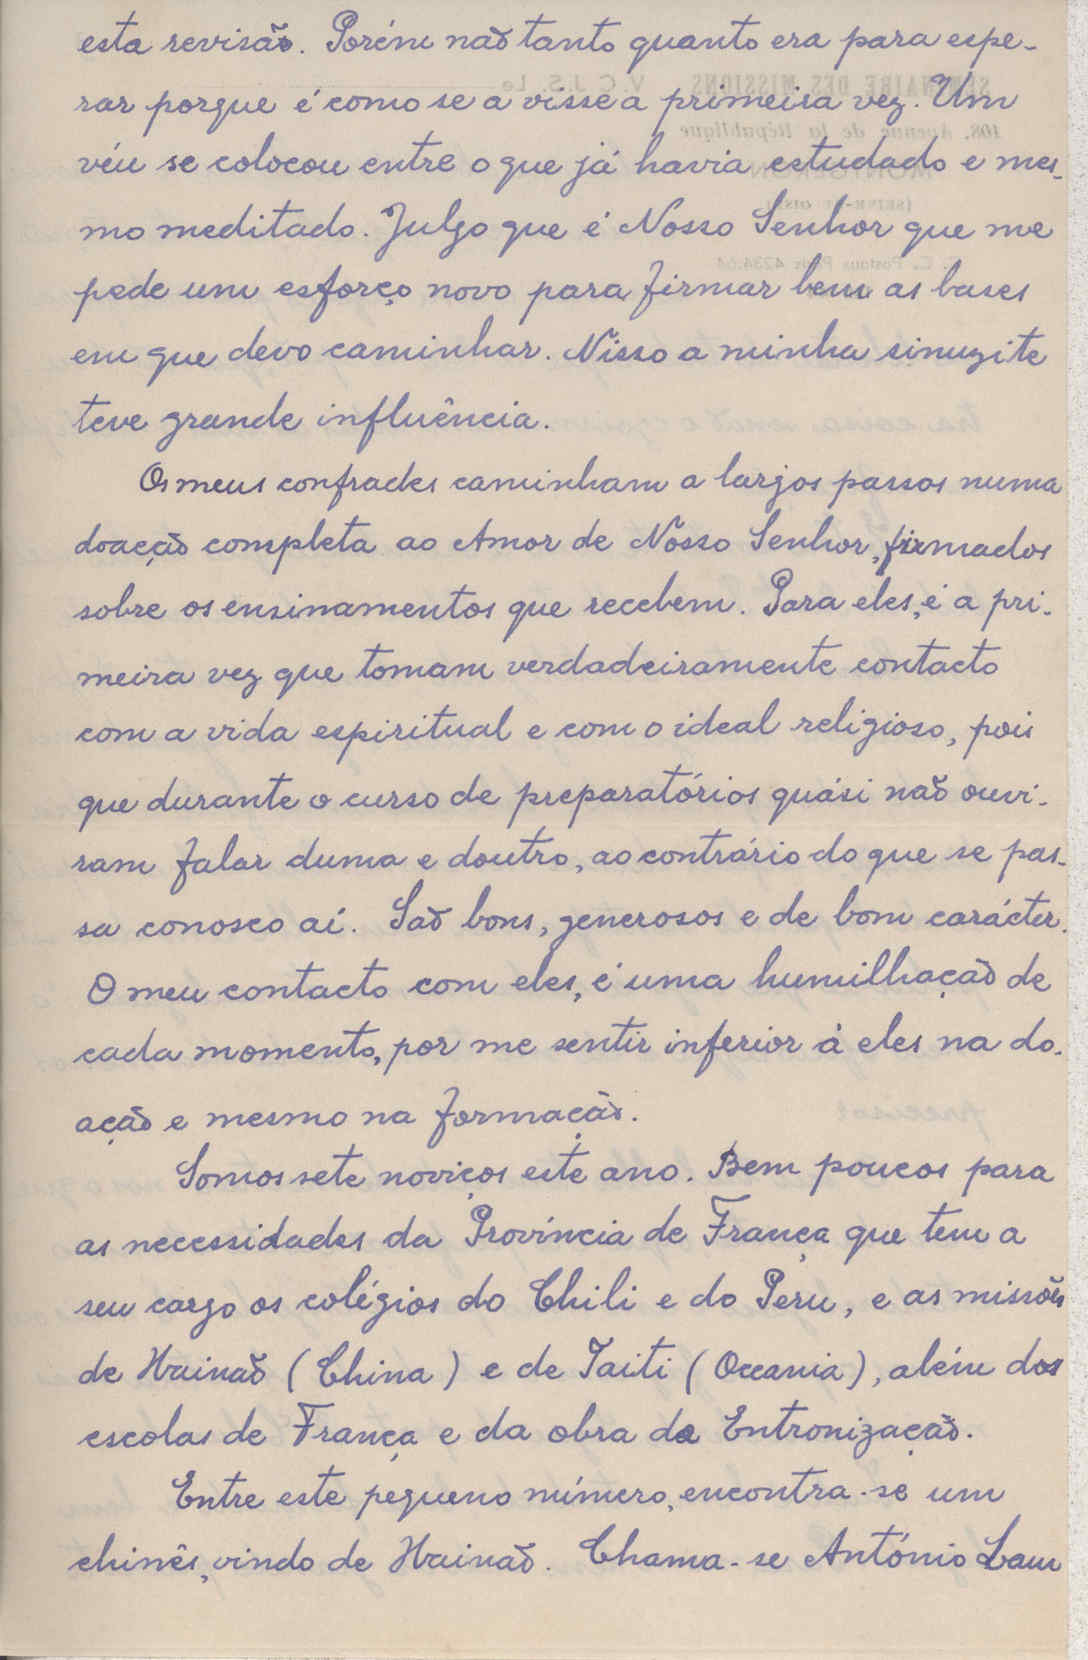 esta revisão. Porém não tanto quanto era para espe-
rar porque é como se a visse a primeira vez. Um
véu se colocou entre o que já havia estudado e mes-
mo meditado. Julgo que é Nosso Senhor que me
pede um esforço novo para firmar bem as bases
em que devo caminhar. Nisso a minha sinuzite
teve grande influência.
Os meus confrades caminham a largos passos numa
doacção completa ao Amor de Nosso Senhor, firmados
sobre os ensinamentos que recebem. Para eles, é a pri-
meira vez que tomam verdadeiramente contacto
com a vida espiritual e com o ideal religioso, pois
que durante o curso de preparatórios quási não ouvi-
ram falar duma e doutro, ao contrário do que se pas-
sa conosco aí. São bons, generosos e de bom carácter.
O meu contacto com eles, é uma humilhação de
cada momento, por me sentir inferior á eles na do-
ação e mesmo na formação.
Somos sete noviços este ano. Bem poucos para
as necessidades da Província de França que tem a
seu cargo os colégios do Chili e do Peru, e as missões
de Hainão (China) e de Taiti (Oceania), além dos
escolas de França e da obra da Entronização.
Entre este pequeno número, encontra-se um
chinês, vindo de Hainão. Chama-se António Lam